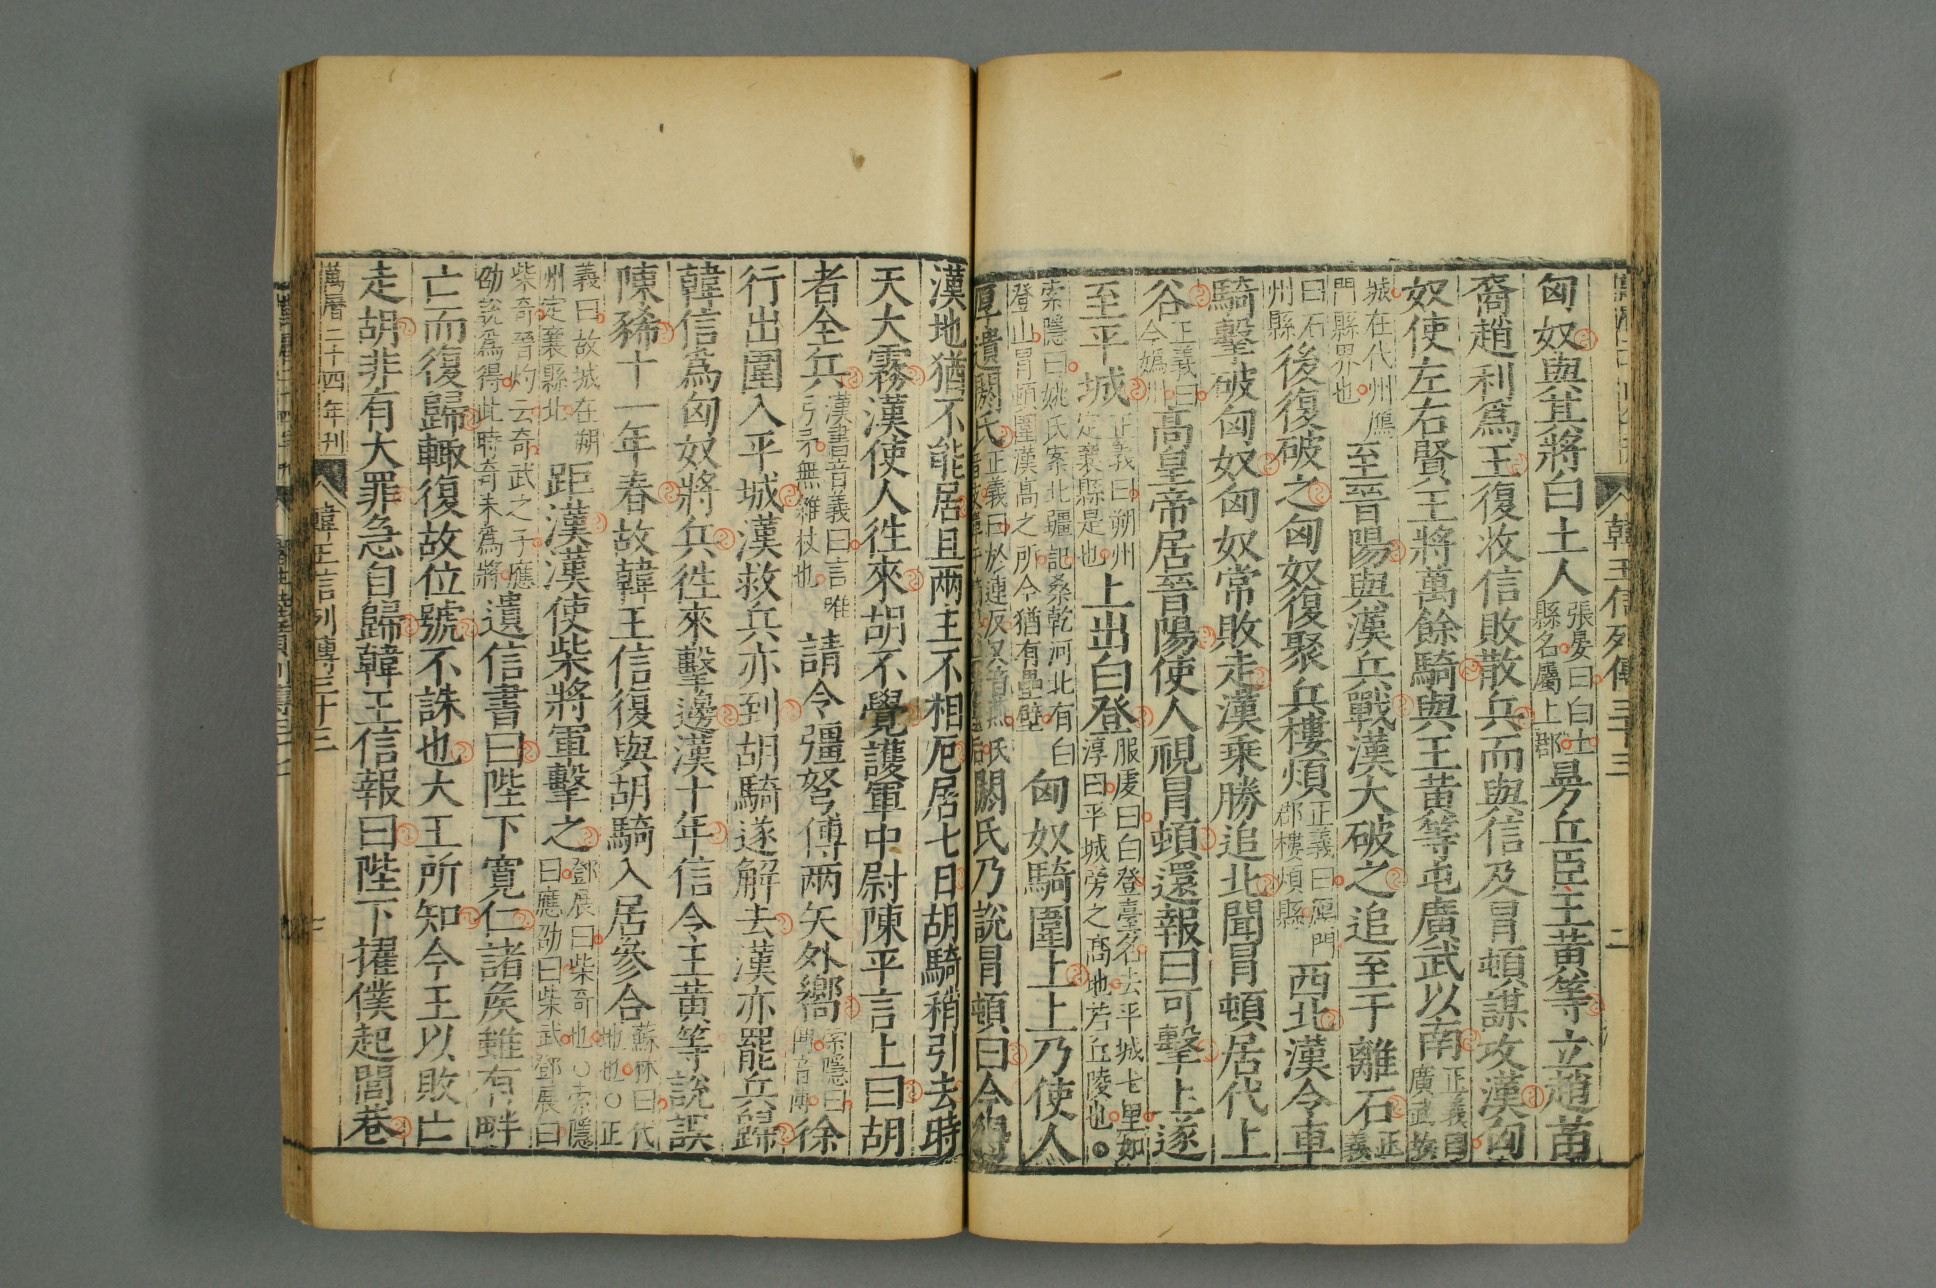 韓王信列傳三十三　二
匈奴與其將白土人張晏曰白土縣名屬上郡曼丘臣王黃等立趙苗
裔趙利爲王復收信敗散兵而與信及冒頓謀攻漢匈
奴使左右賢王將萬餘騎與王黃等屯廣武以南正義曰廣武故
城在代州鴈門縣界也至晉陽與漢兵戰漢大破之追至于離石正義
曰石州縣後復破之匈奴復聚兵樓煩正義曰鴈門郡樓煩縣西北漢令車
騎擊破匈奴匈奴常敗走漢乘勝追北聞冒頓居代上
谷正義曰今媯州高皇帝居晉陽使人視冒頓還報曰可擊上遂
至平城正義曰朔州定襄縣是也上出白登服虔曰白登臺名去平城七里如淳曰平城旁之高地若丘陵也○
索隱曰姚氏案北疆記桑乾河北有白登山冒頓圍漢高之所今猶有壘壁匈奴騎圍上上乃使人
厚遺閼氏正義曰於連反又音燕氏閼氏乃說冒頓曰今得
漢地猶不能居且兩主不相厄居七日胡騎稍引去時
天大霧漢使人徃來胡不覺護軍中尉陳平言上曰胡
者全兵漢書音義曰言唯弓矛無雜杖也請令彊弩傅兩矢外嚮索隱曰傅音附徐
行出圍入平城漢救兵亦到胡騎遂解去漢亦罷兵歸
韓信爲匈奴將兵徃來擊邊漢十年信令王黃等說誤
陳豨十一年春故韓王信復與胡騎入居參合蘇林曰代地也○正
義曰故城在朔州定襄縣北距漢漢使柴將軍擊之鄧展曰柴奇也○索隱曰應劭曰柴武鄧展曰
柴奇晉灼云奇武之子應劭說爲得此時奇未爲將遺信書曰陛下寬仁諸侯雖有畔
亡而復歸輙復故位號不誅也大王所知今王以敗亡
走胡非有大罪急自歸韓王信報曰陛下擢僕起閭巷
萬曆二十四年刊　韓王信列傳三十三